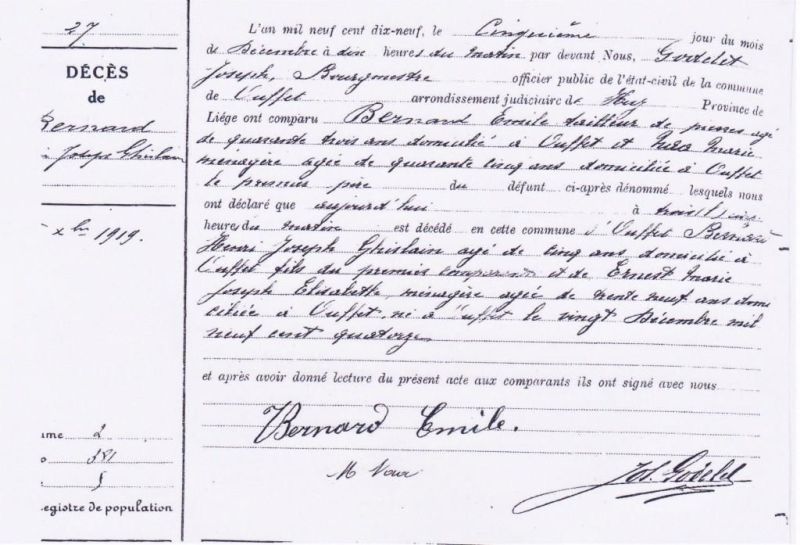 27
DÉCÈS
de
Bernard
Joseph Ghislain
xbre 1919.
2
381
egistre de population
L'an mil neuf cent dix-neuf, le Cinquième jour du mois
de Décembre à dix heures du matin par devant Nous, Godelet
Joseph, Bourgmestre officier public de l'état-civil de la commune
de Ouffet arrondissement judiciaire de Huy Province de
Liége ont comparu Bernard Emile tailleur de pierres agé
de quarante trois ans domicilié à Ouffet et Marie
ménagère agée de quarante cinq ans domiciliée à Ouffet
le premier père du défunt ci-après dénommé lesquels nous
ont déclaré que aujourd'hui à trois
heures du matin est décédé en cette commune d'Ouffet Bernard
Henri Joseph Ghislain agé de cinq ans domicilié à
Ouffet fils du premier comparant et de Ernest Marie
Joseph Elisabette, ménagère agée de trente neuf ans domi
ciliée à Ouffet, né à Ouffet le vingt Décembre mil
neuf cent quatorze
et après avoir donné lecture du présent acte aux comparants ils ont signé avec nous
Bernard Emile.
M
Jos. Godelet